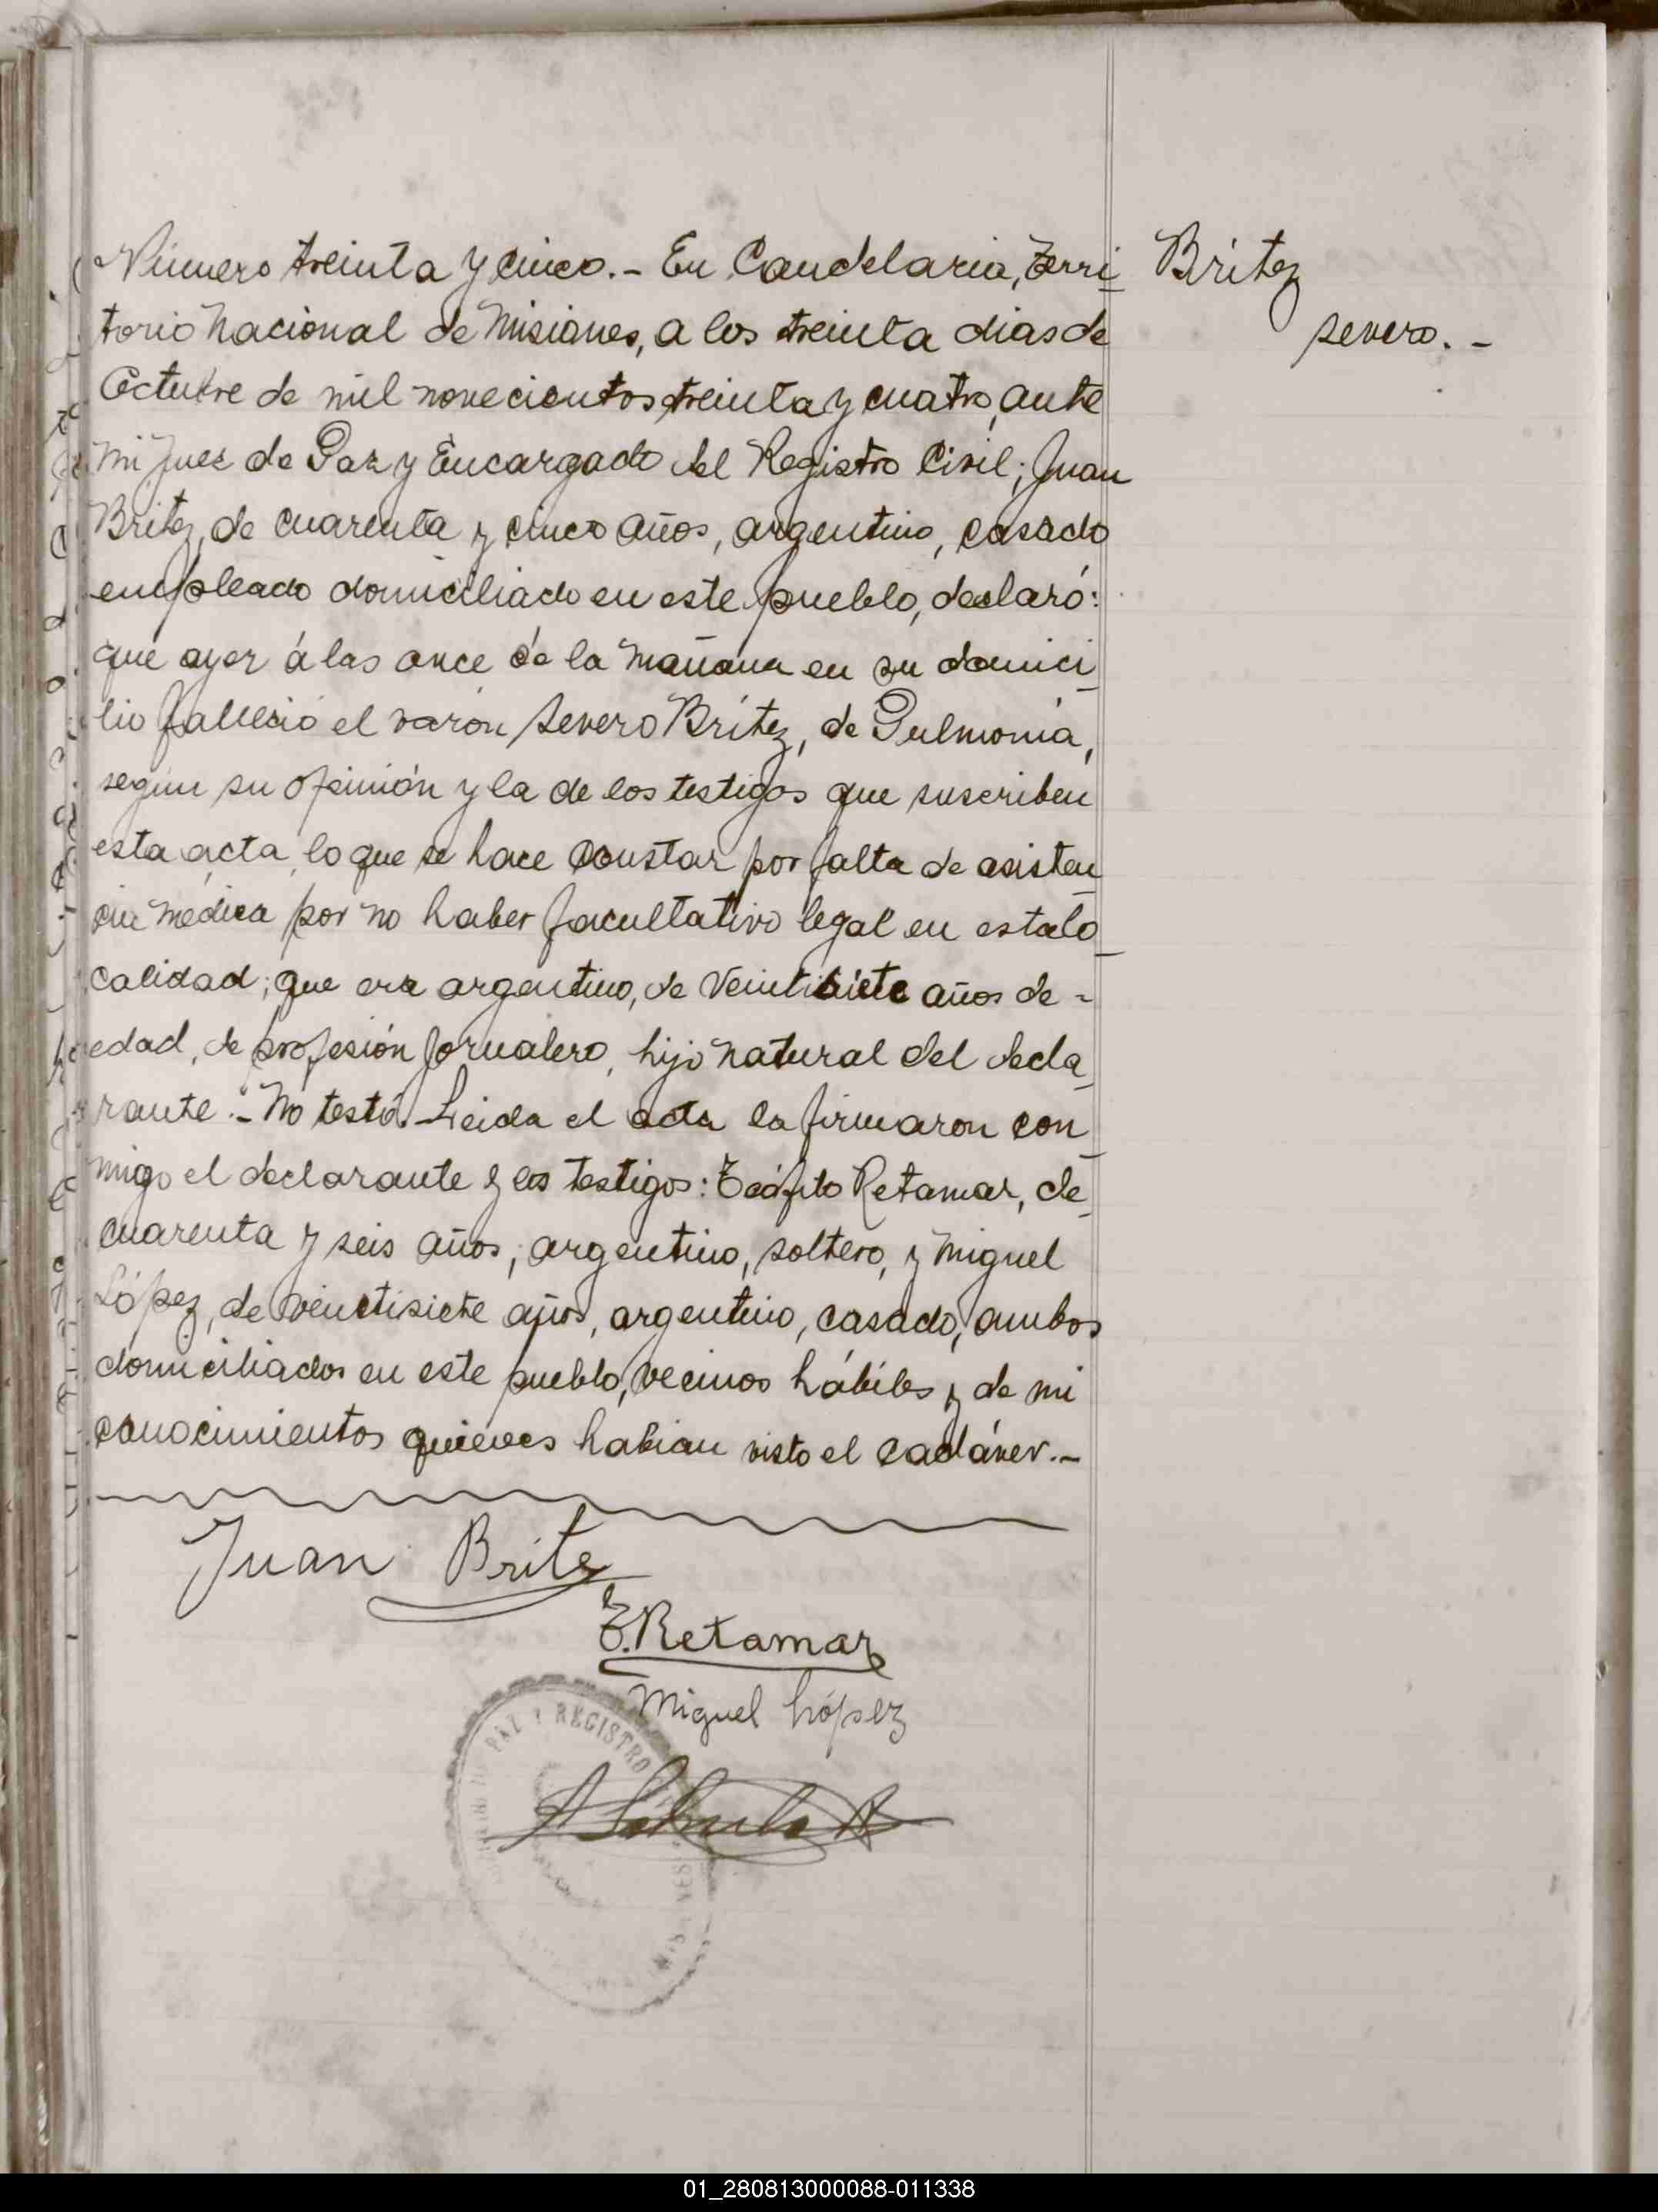 Número treinta y cinco.- En Candelaria, Terri
torio Nacional de Misiones, a los treinta dias de
Octubre de mil novecientos treinta y cuatro, ante
mi Juez de Paz y Encargado del Registro Civil; Juan
Britez, de cuarenta y cinco años, argentino, casado
empleado domiciliado en este pueblo, declaró:
que ayer á las once de la mañana en su domici
lio falleció el varón Severo Brítez, de Pulmonia,
según su opinión y la de los testigos que suscriben
esta acta, lo que se hace constar por falta de asisten
cia médica por no haber facultativo legal en esta lo
calidad; que era argentino, de Veintisiete años de -
edad, de profesión Jornalero, hijo natural del decla
rante.- No testó.- Leida el acta la firmaron con
migo el declarante y los testigos: Teófilo Retamar, de
cuarenta y seis años, argentino, soltero, y Miguel
López, de veintisiete años, argentino, casado, ambos
domiciliados en este pueblo, vecinos hábiles y de mi
conocimientos quienes habian visto el cadáver.-
Brítez
Severo.-
Juan Britez
T. Retamar
Miguel López
PAZ Y REGISTRO
01_280813000088-011338